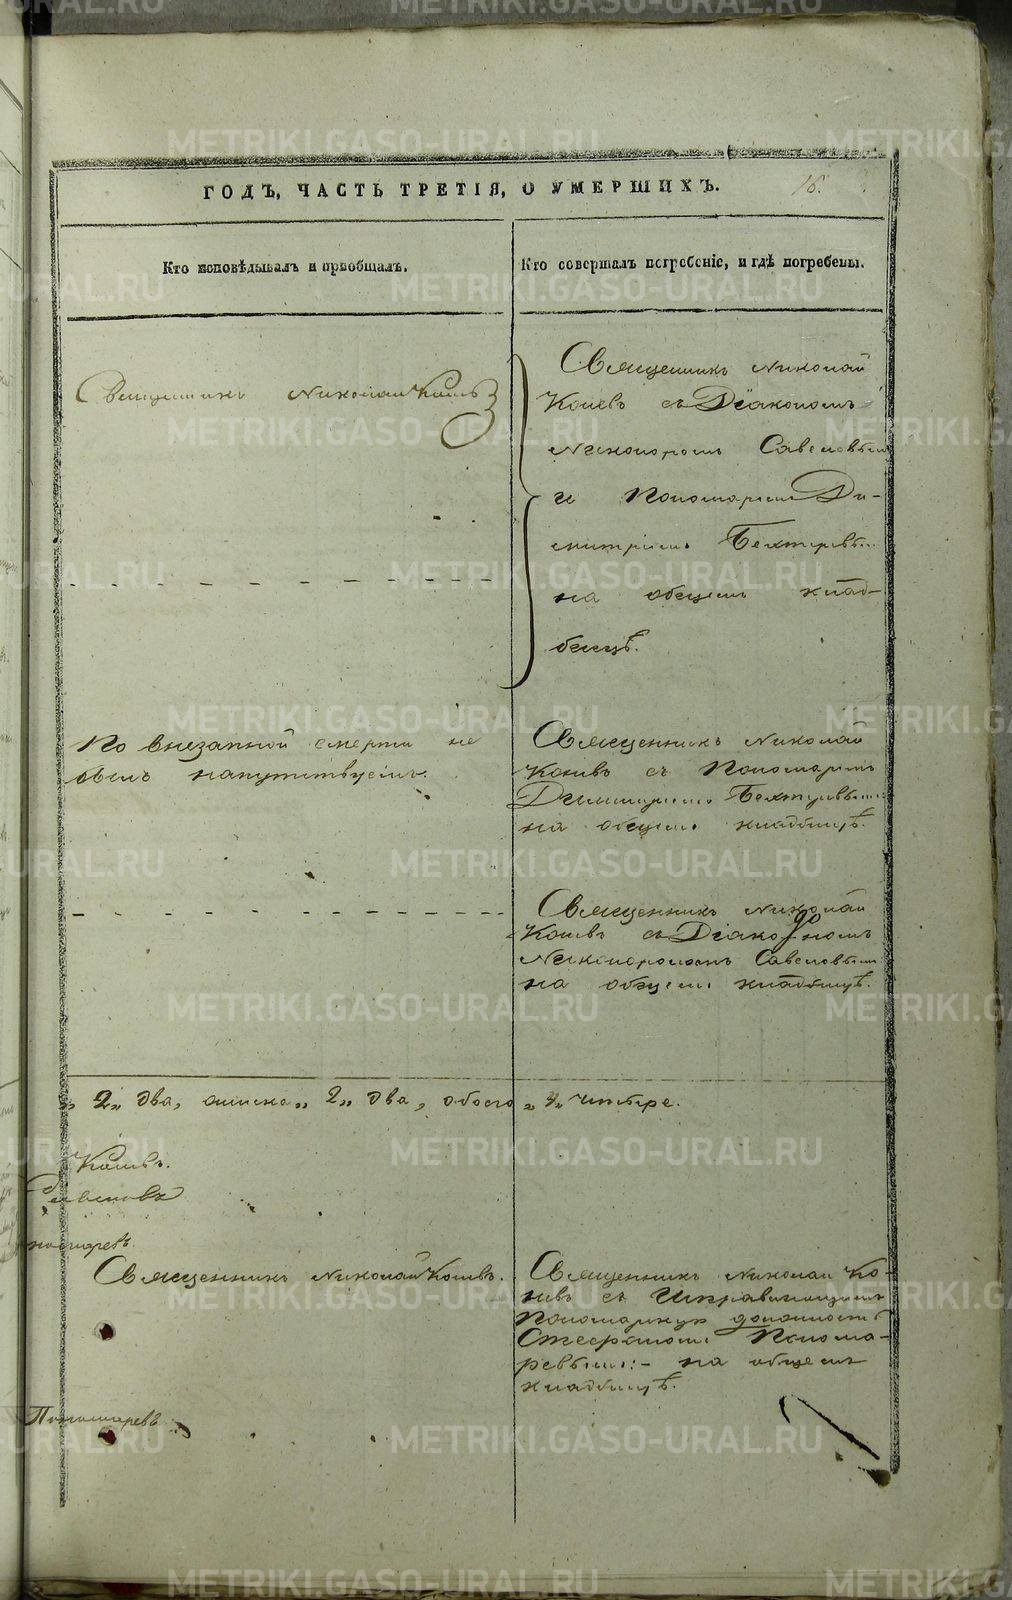 ГОДЪ, ЧАСТЬ ТРЕТІЯ, О УМЕРШИХЪ.
Кто исповѣдывалъ и пріобщалъ.
Кто совершалъ погребеніе, и гдѣ погребены.
Священникъ Николай
Священникъ Николай
съ Діакономъ
Никоноромъ Савеловым
и Пономаремъ Ди-
митріемъ Бехтеревым
на общемъ клад-
бищѣ.
По внезапной смерти не
былъ напутствуемъ.
Священникъ Николай
съ Пономаремъ
Димитріемъ Бехтеревым
на общемъ кладбищѣ.
Священникъ Николай
съ Діакономъ
Никоноромъ Савеловым
на общемъ кладбищѣ.
„ 2„ два, женска„ 2„ два, обоего „ 4„ четыре.
Священникъ Николай
Священникъ Николай
съ Исправляющимъ
Пономарскую должность
Стефаномъ Понома-
ревымъ:- на общемъ
кладбищѣ.
Пономаревъ
METRIKI.GASO-URAL.RU